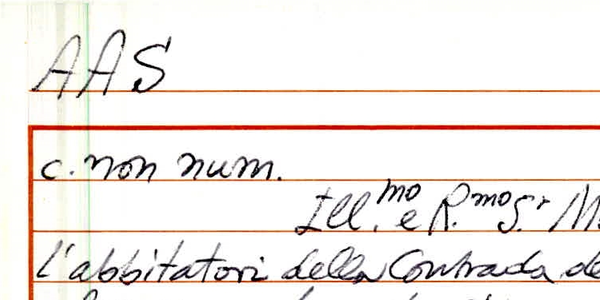 AAS
c. non num.
Ill.mo e R.mo S.r M.
l'abbitatori della Contrada de